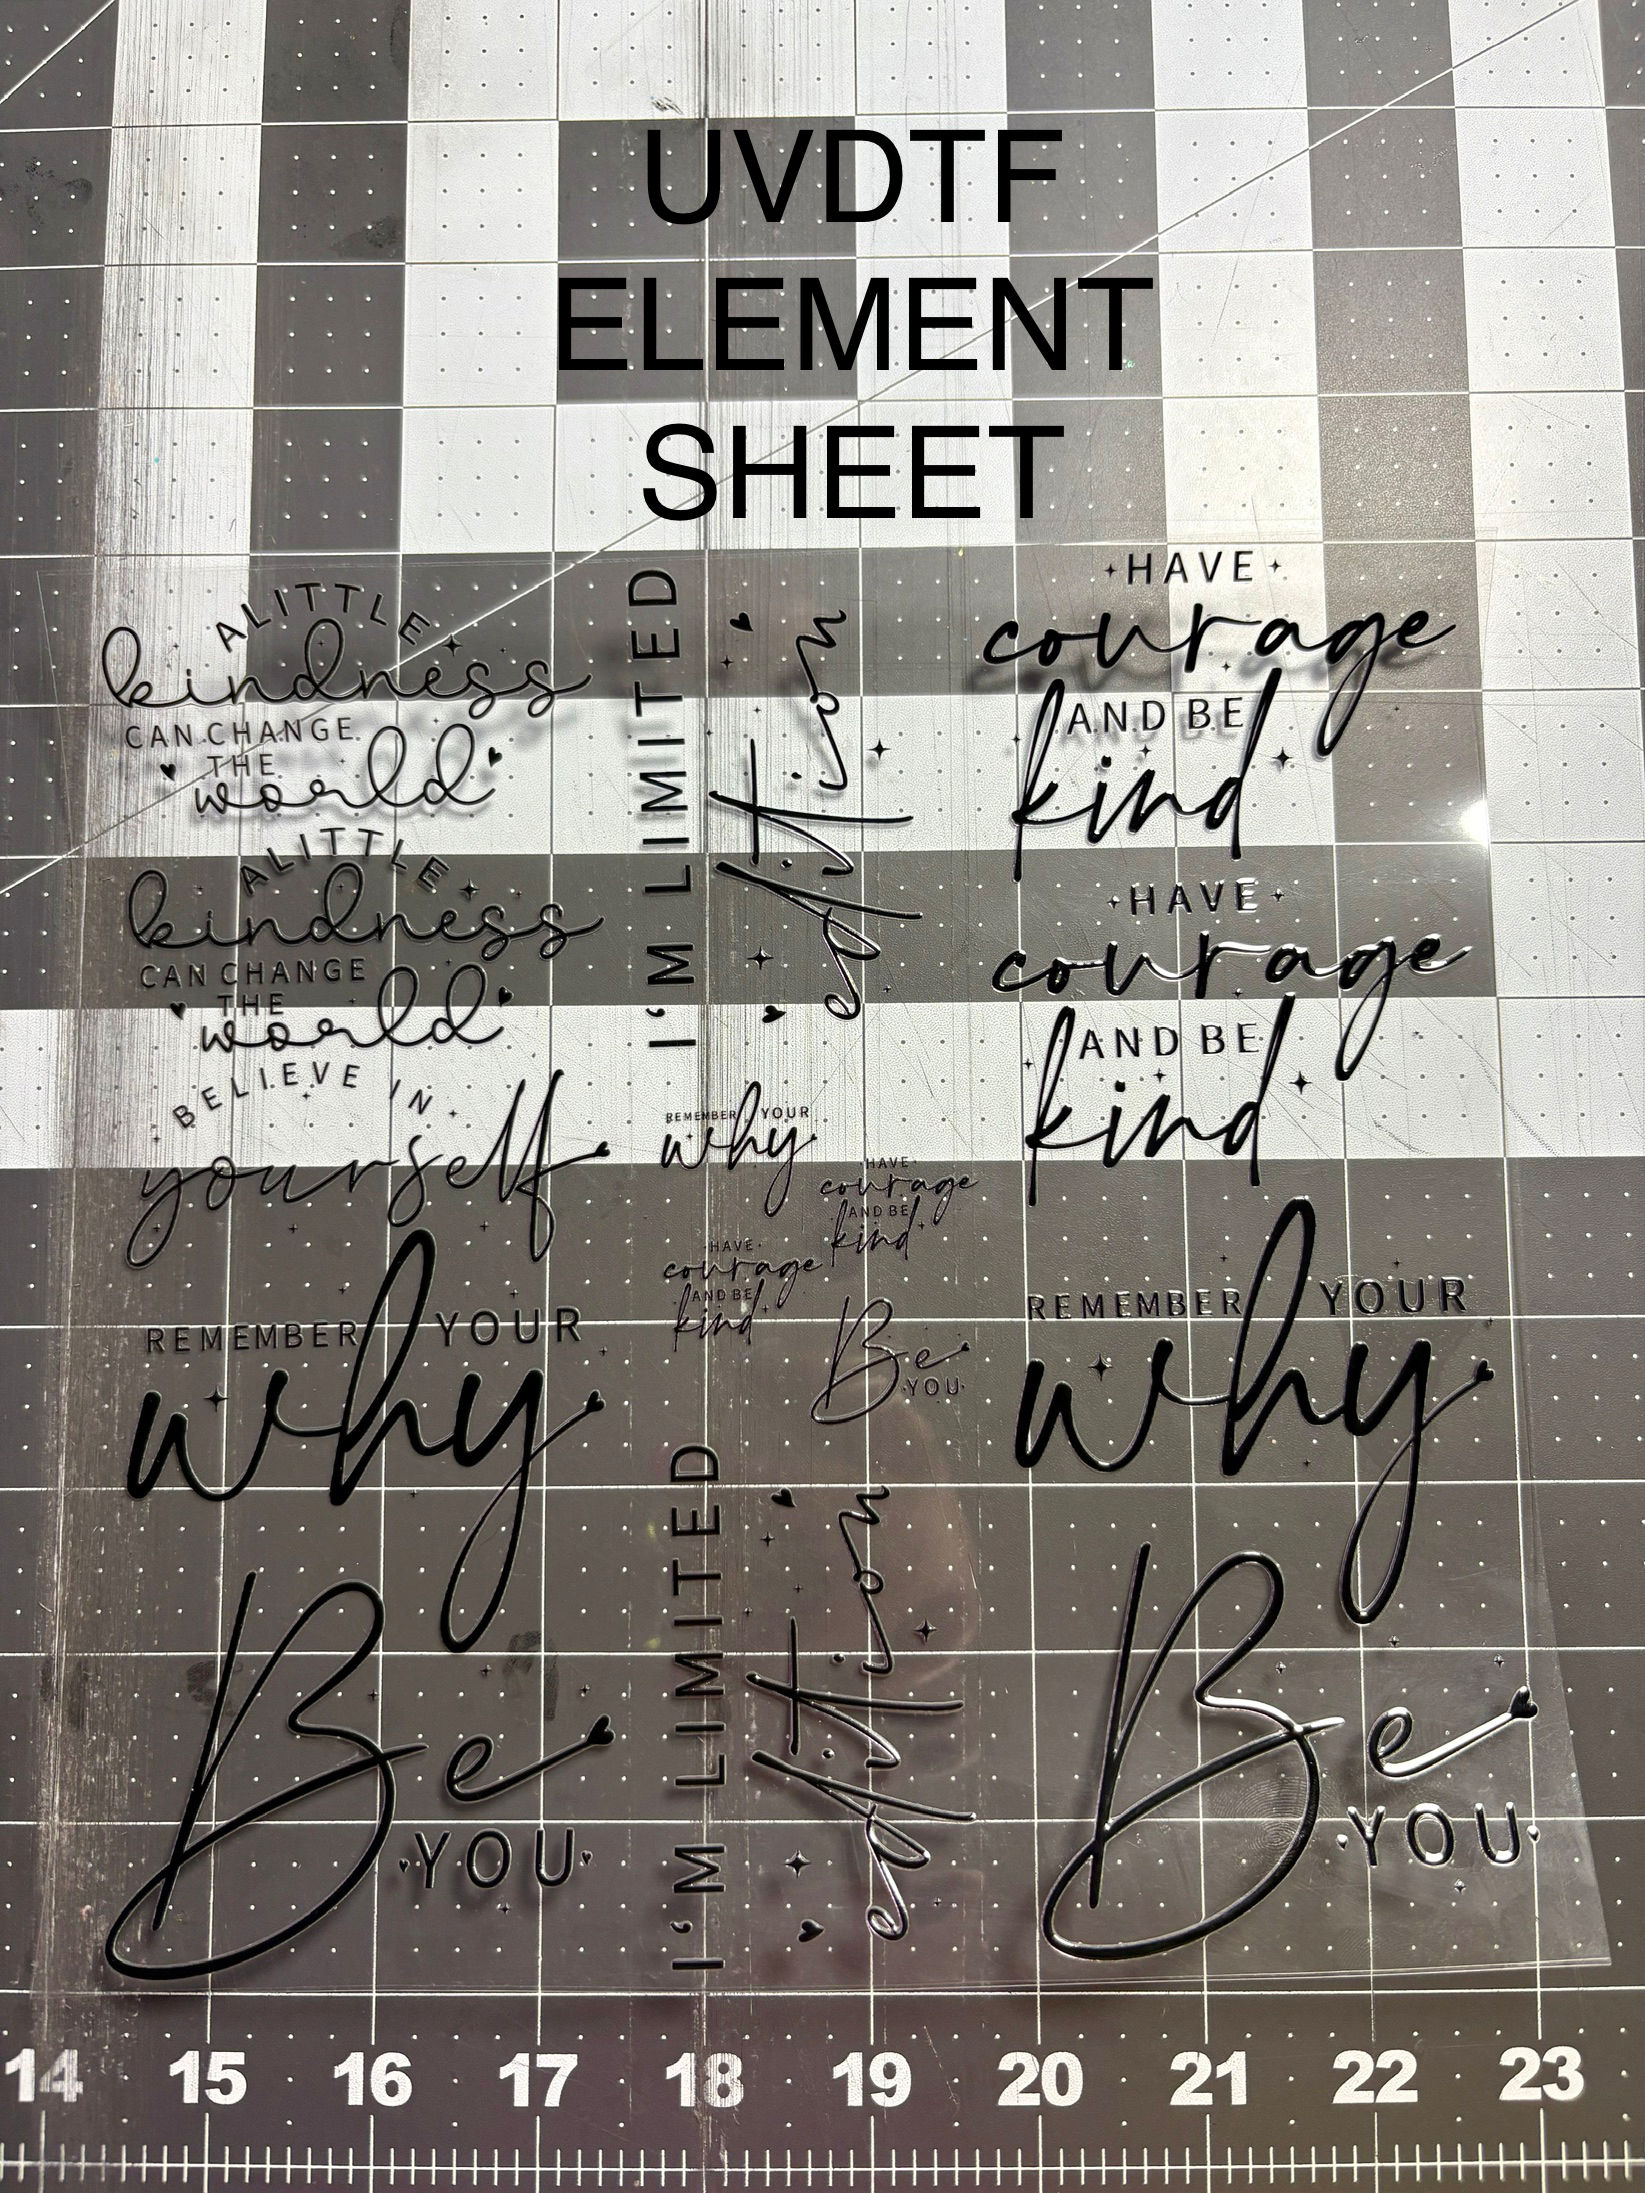 UVDTF
ELEMENT
SHEET
A LITTLE
kindness
CAN CHANGE
THE
world
A LITTLE
kindness
CAN CHANGE
THE
world
BELIEVE IN
yourself
REMEMBER YOUR
why
Be
YOU
I'M LIMITED
edition
REMEMBER YOUR
why
HAVE
courage
AND BE
kind
HAVE
courage
AND BE
kind
Be
YOU
I'M LIMITED
edition
HAVE
courage
AND BE
kind
HAVE
courage
AND BE
kind
REMEMBER YOUR
why
Be
YOU
14 15 16 17 18 19 20 21 22 23